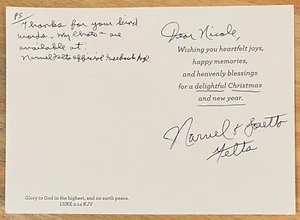 PS
Thanks for your kind
words - My Chats are
available at:
Narvel Felts Official Facebook Page
Dear Nicole,
Wishing you heartfelt joys,
happy memories,
and heavenly blessings
for a delightful Christmas
and new year.
Narvel & Loretta
Felts
Glory to God in the highest, and on earth peace.
LUKE 2:14 KJV